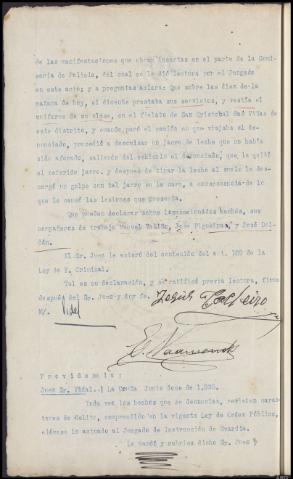 de las manifestaciones que obran insertas en el parte de la Comi-
saria de Policia, del cual se le dió lectura por el Juzgado
en este acto; y a preguntas aclara: Que sobre las diez de la
mañana de hoy, el dicente prestaba sus servicios, y vestia el
uniforme de su clase, en el fielato de San Cristobal das Viñas de
este distrito, y cuando paró el camión en que viajaba el de-
nunciado, procedió a decomisar un jarro de leche que no habia
sido aforado, saliendo del vehiculo el denunciado, que le quitó
el referido jarro, y despues de tirar la leche al suelo le des-
cargó un golpe con tal jarro en la cara, a consecuencia de lo
que le causó las lesiones que presenta.
Que pueden declarar sobre los mencionados hechos, sus
compañeros de trabajo Manuel José Figueiras, y José Rol-
dán.
El Sr. Juez le enteró del contenido del art. 109 de la
Ley de E. Criminal.
Tal es su declaración, y se ratificó previa lectura, firma
despues del Sr. Juez y doy fe.
Vidal
Providencia:
Juez Sr. Vidal. La Coruña Junio doce de 1,935.
Toda vez los hechos que se denuncian, revisten carac-
teres de delito, comprendido en la vigente Ley de Orden Público,
elévese lo actuado al Juzgado de Instrucción de Guardia.
Lo mandó y rubrica dicho Sr. Juez